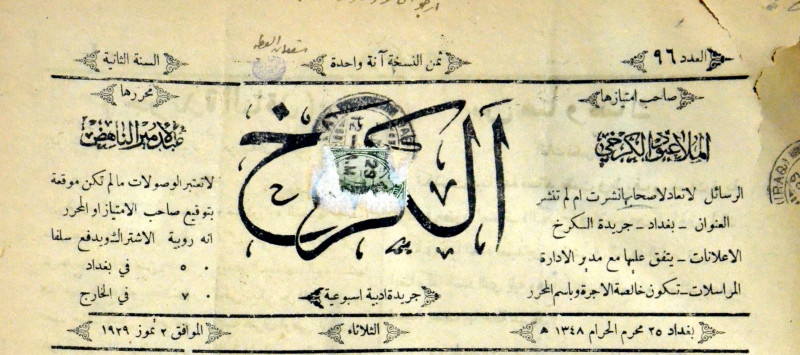 العدد ٩٦
ثمن النسخة آنة واحدة
السنة الثانية
صاحب امتيازها
الملا عبود الكرخي
الرسائل لا تعاد لاصحابها نشرت ام لم تنشر
العنوان - بغداد - جريدة الكرخ
الاعلانات - يتفق عليها مع مدير الادارة
المراسلات - تكون خالصة الاجرة وباسم المحرر
الكرخ
جريدة ادبية اسبوعية
محررها
لا تعتبر الوصولات مالم تكن موقعة
بتوقيع صاحب الامتياز او المحرر
آنه روبية الاشتراك ويدفع سلفا
٠ ٥ في بغداد
٠ ٧ في الخارج
بغداد ٢٥ محرم الحرام ١٣٤٨ هـ
الثلاثاء
الموافق ٢ تموز ١٩٢٩